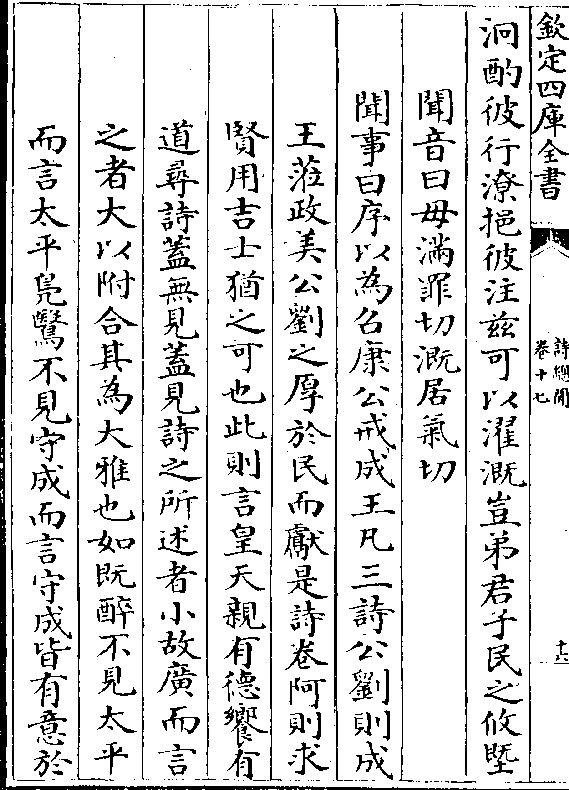 欽定四庫全書
詩總聞
卷十七
十六
泂酌彼行潦挹彼注兹可以濯溉豈弟君子民之攸塈
聞音曰毋滿罪切溉居氣切
聞事曰序以為召康公戒成王凡三詩公劉則成
王蒞政美公劉之厚於民而獻是詩卷阿則求
賢用吉士猶之可也此則言皇天親有德饗有
道尋詩葢無見葢見詩之所述者小故廣而言
之者大以附合其為大雅也如既醉不見太平
而言太平鳧鷖不見守成而言守成皆有意於